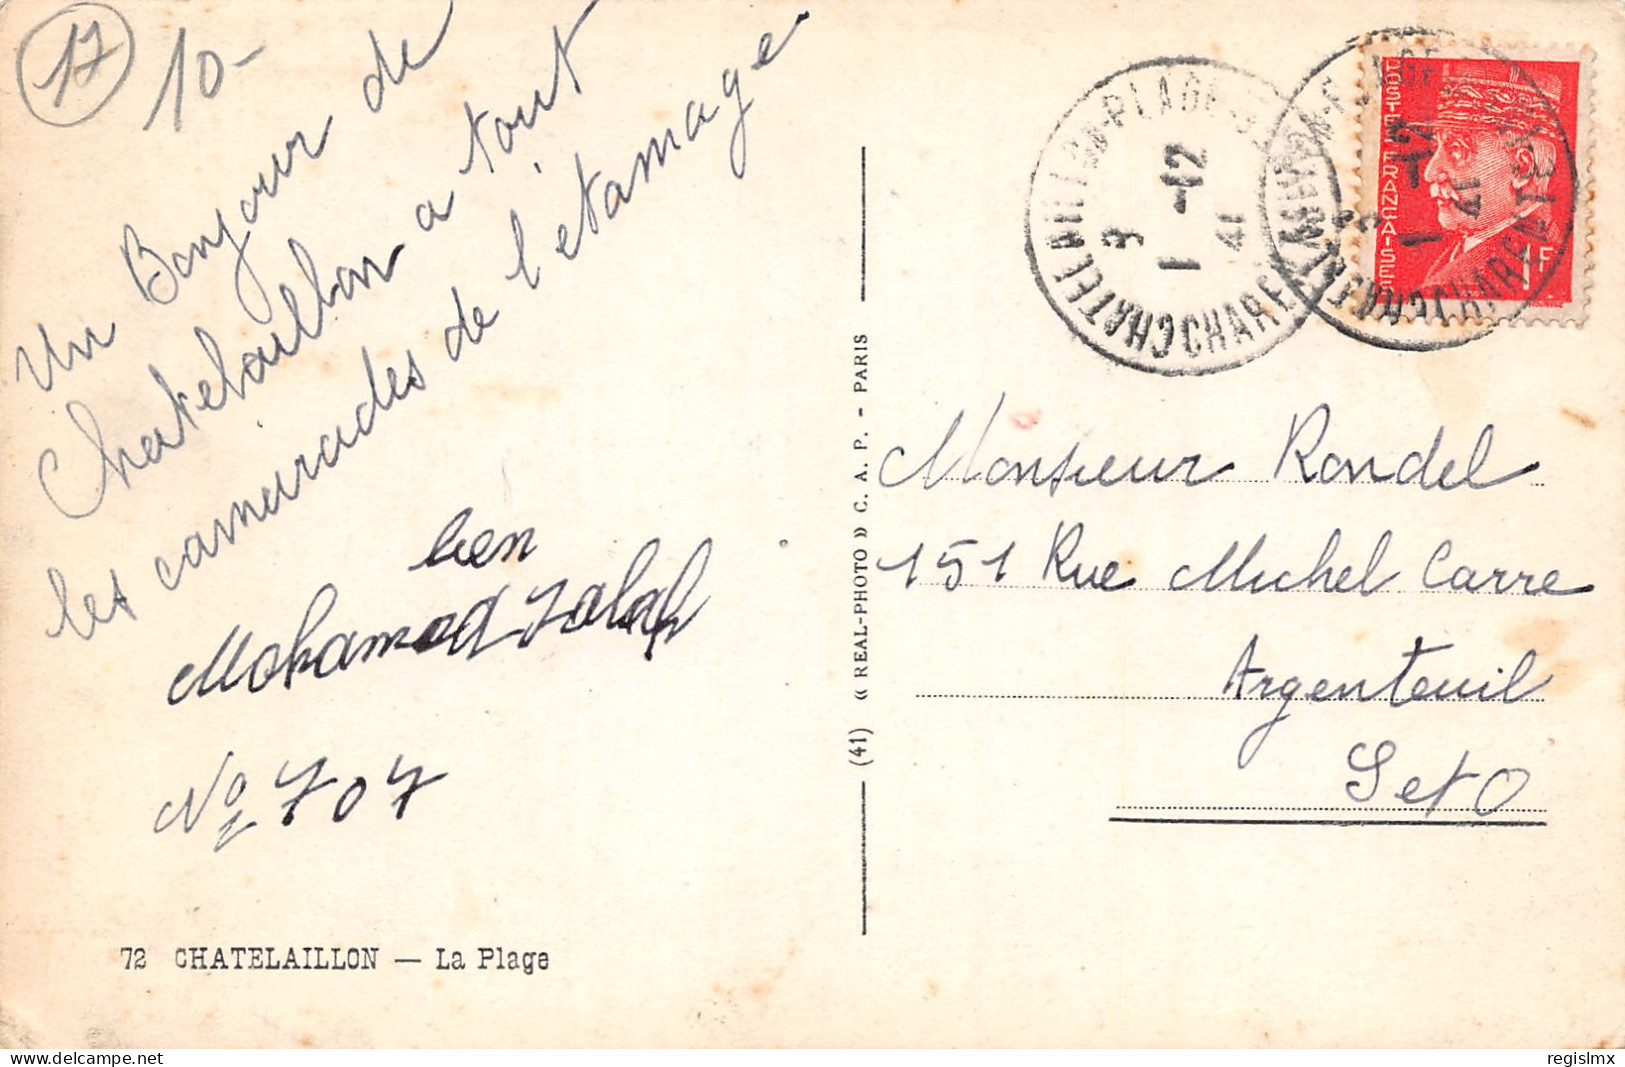 17
10-
Un Bonjour de
Chatelaillon a tout
les camarades de l'etamage
ben
Mohamed Salah
No 707
72 CHATELAILLON — La Plage
(41) « REAL-PHOTO » C. A. P. - PARIS
CHATELAILLON-PLAGE
1 -12
41
POSTES FRANÇAISES
1F
Monsieur Rondel
151 Rue Michel Carre
Argenteuil
S et O
regislmx